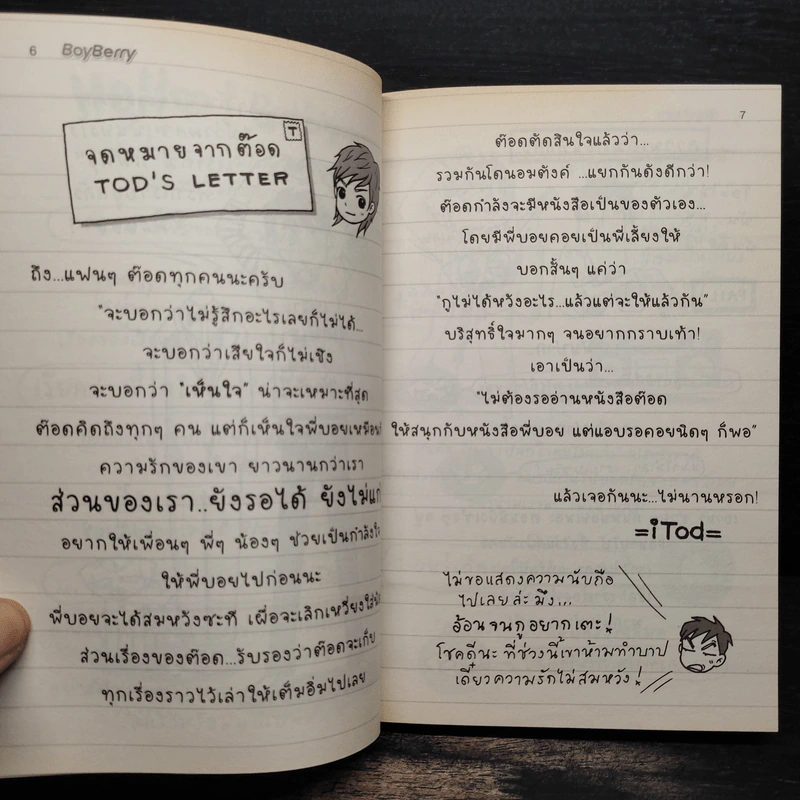 6 BoyBerry
T
จดหมายจากต๊อด
TOD'S LETTER
ถึง...แฟนๆ ต๊อดทุกคนนะครับ
"จะบอกว่าไม่รู้สึกอะไรเลยก็ไม่ได้...
จะบอกว่าเสียใจก็ไม่เชิง
จะบอกว่า "เห็นใจ" น่าจะเหมาะที่สุด
ต๊อดคิดถึงทุกๆ คน แต่ก็เห็นใจพี่บอยเหมือน
ความรักของเขา ยาวนานกว่าเรา
ส่วนของเรา..ยังรอได้ ยังไม่แก่
อยากให้เพื่อนๆ พี่ๆ น้องๆ ช่วยเป็นกำลังใจ
ให้พี่บอยไปก่อนนะ
พี่บอยจะได้สมหวังซะที เผื่อจะเลิกเหวี่ยงใส่
ส่วนเรื่องของต๊อด...รับรองว่าต๊อดจะเก็บ
ทุกเรื่องราวไว้เล่าให้เต็มอิ่มไปเลย
7
ต๊อดตัดสินใจแล้วว่า...
รวมกันโดนอมตังค์ ...แยกกันดังดีกว่า!
ต๊อดกำลังจะมีหนังสือเป็นของตัวเอง...
โดยมีพี่บอยคอยเป็นพี่เลี้ยงให้
บอกสั้นๆ แค่ว่า
"กูไม่ได้หวังอะไร...แล้วแต่จะให้แล้วกัน"
บริสุทธิ์ใจมากๆ จนอยากกราบเท้า!
เอาเป็นว่า...
"ไม่ต้องรออ่านหนังสือต๊อด
ให้สนุกกับหนังสือพี่บอย แต่แอบรอคอยนิดๆ ก็พอ"
แล้วเจอกันนะ...ไม่นานหรอก!
=iTod=
ไม่ขอแสดงความนับถือ
ไปเลยล่ะ มึง...
อ้อน จนกูอยากเตะ!
โชคดีนะ ที่ช่วงนี้เขาห้ามทำบาป
เดี๋ยวความรักไม่สมหวัง!